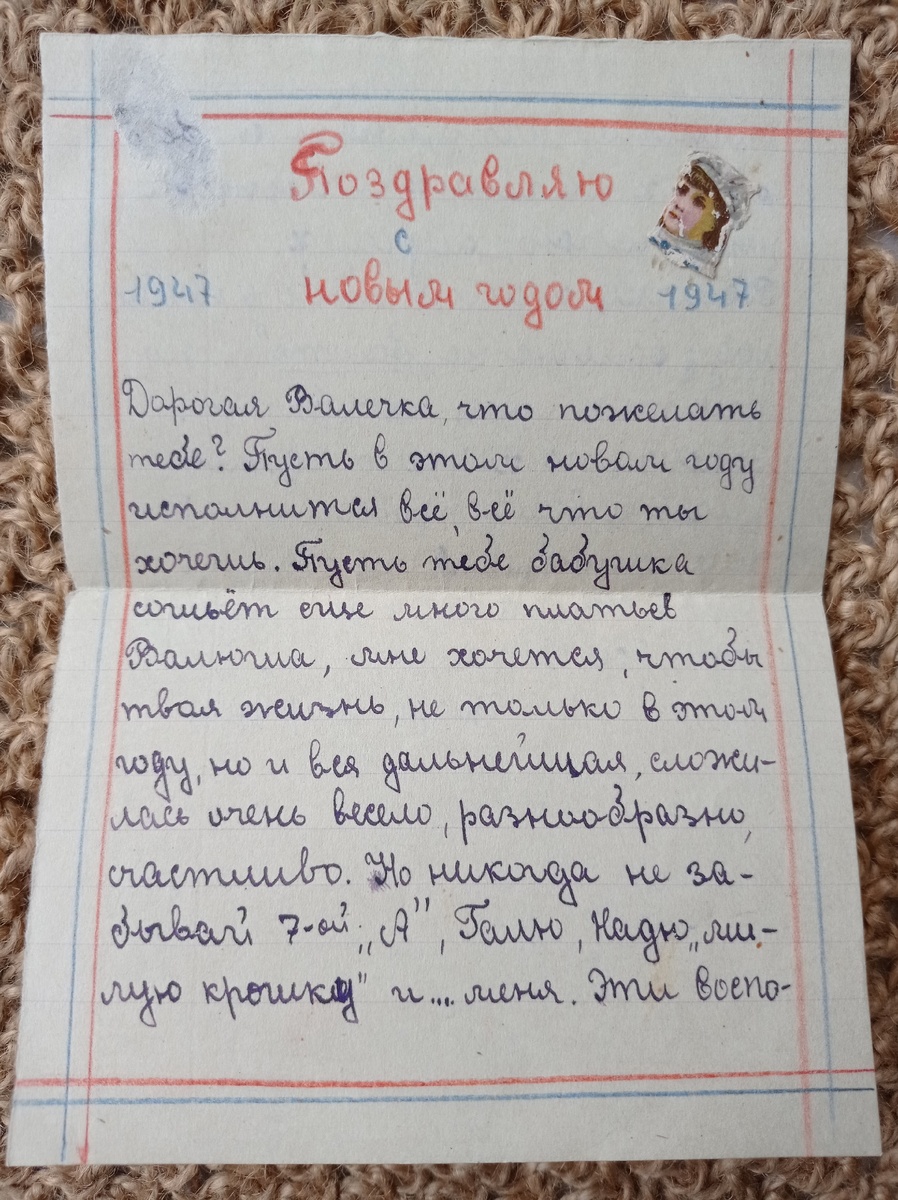 Поздравляю
с
1947 новым годом 1947
Дорогая Валечка, что пожелать
тебе? Пусть в этом новом году
исполнится всё, всё что ты
хочешь. Пусть тебе бабушка
сошьёт еще много платьев
Валюша, мне хочется, чтобы
твоя жизнь, не только в этом
году, но и вся дальнейшая, сложи-
лась очень весело, разнообразно,
счастливо. Но никогда не за-
бывай 7-ой „А", Галю, Надю „ми-
лую крошку" и... меня. Эти воспо-